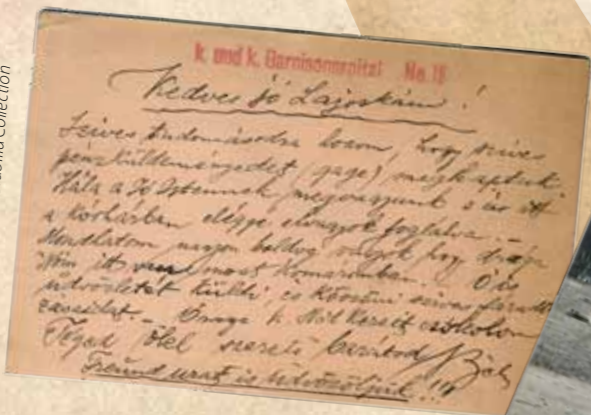 Collection
k. und k. Garnisonsspital No. 
Kedves jó Lajoskám!
Szíves tudomásodra hozom, hogy szíves
pénzküldeményedet (gage) megkaptuk.
Hála a Jó Istennek, megvagyunk s én itt
a kórházban eléggé vagyok foglalva. –
Mondhatom nagyon boldog vagyok hogy
itt van most Komáromban. Ő is
üdvözletét küldi, és köszöni szíves
csókolom
Téged ölel szerető barátod
Freund urat is üdvözöljük!!!